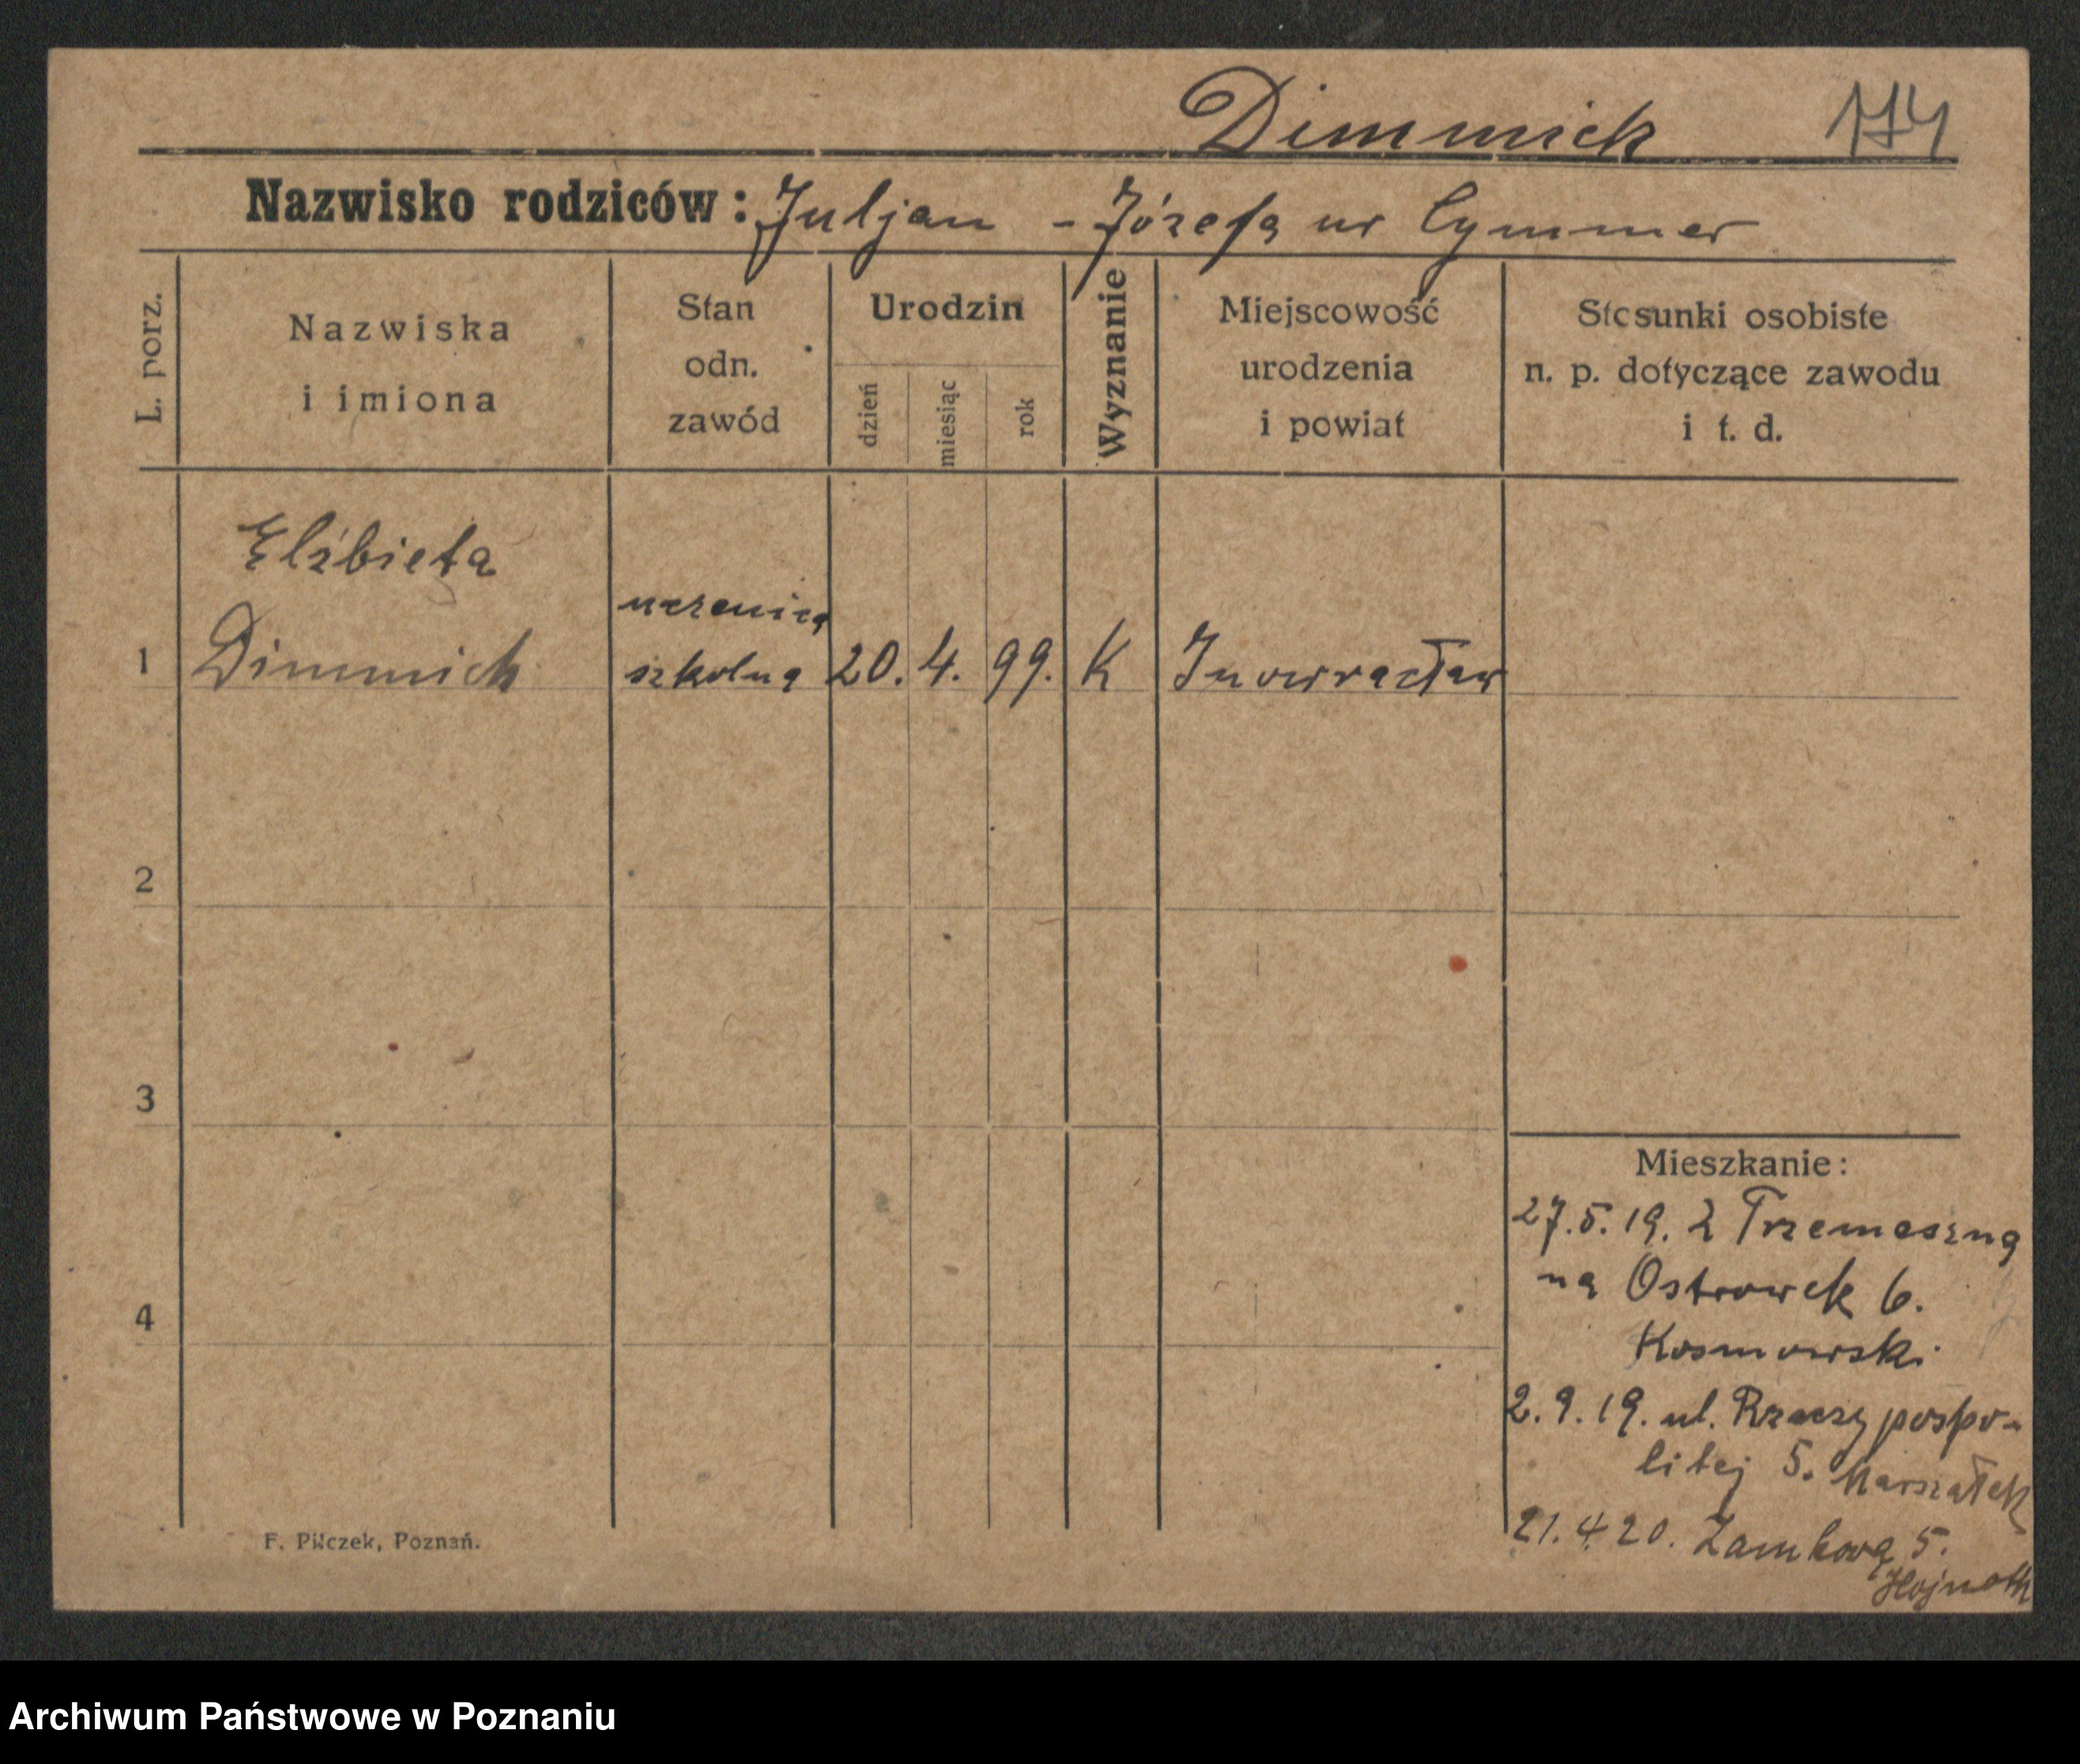 Dimmich 174
Nazwisko rodziców: Juljan - Józefa ur Cymmer
L. porz.
Nazwiska
i imiona
Stan
odn.
zawód
Urodzin
dzień
miesiąc
rok
Wyznanie
Miejscowość
urodzenia
i powiat
Stosunki osobiste
n. p. dotyczące zawodu
i t. d.
Elżbieta
uczenica
1 Dimmich szkolna 20. 4. 99. K Inowracław
2
3
4
Mieszkanie:
27.5.19. z Trzemeszna
na Ostrowek 6.
Kosmowski
2.9.19. ul. Rzeczypospo-
litej 5. Marszałek
21.4.20. Zamkowa 5.
F. Pilczek, Poznań.
Archiwum Państwowe w Poznaniu